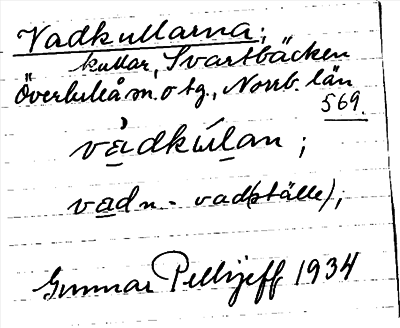 Vadkullarna;
kullar, Svartbäcken
Överluleå m. o tg., Norrb. län
569.
vàdkúlan;
vad n - vad(ställe);
Gunnar Pellijeff 1934